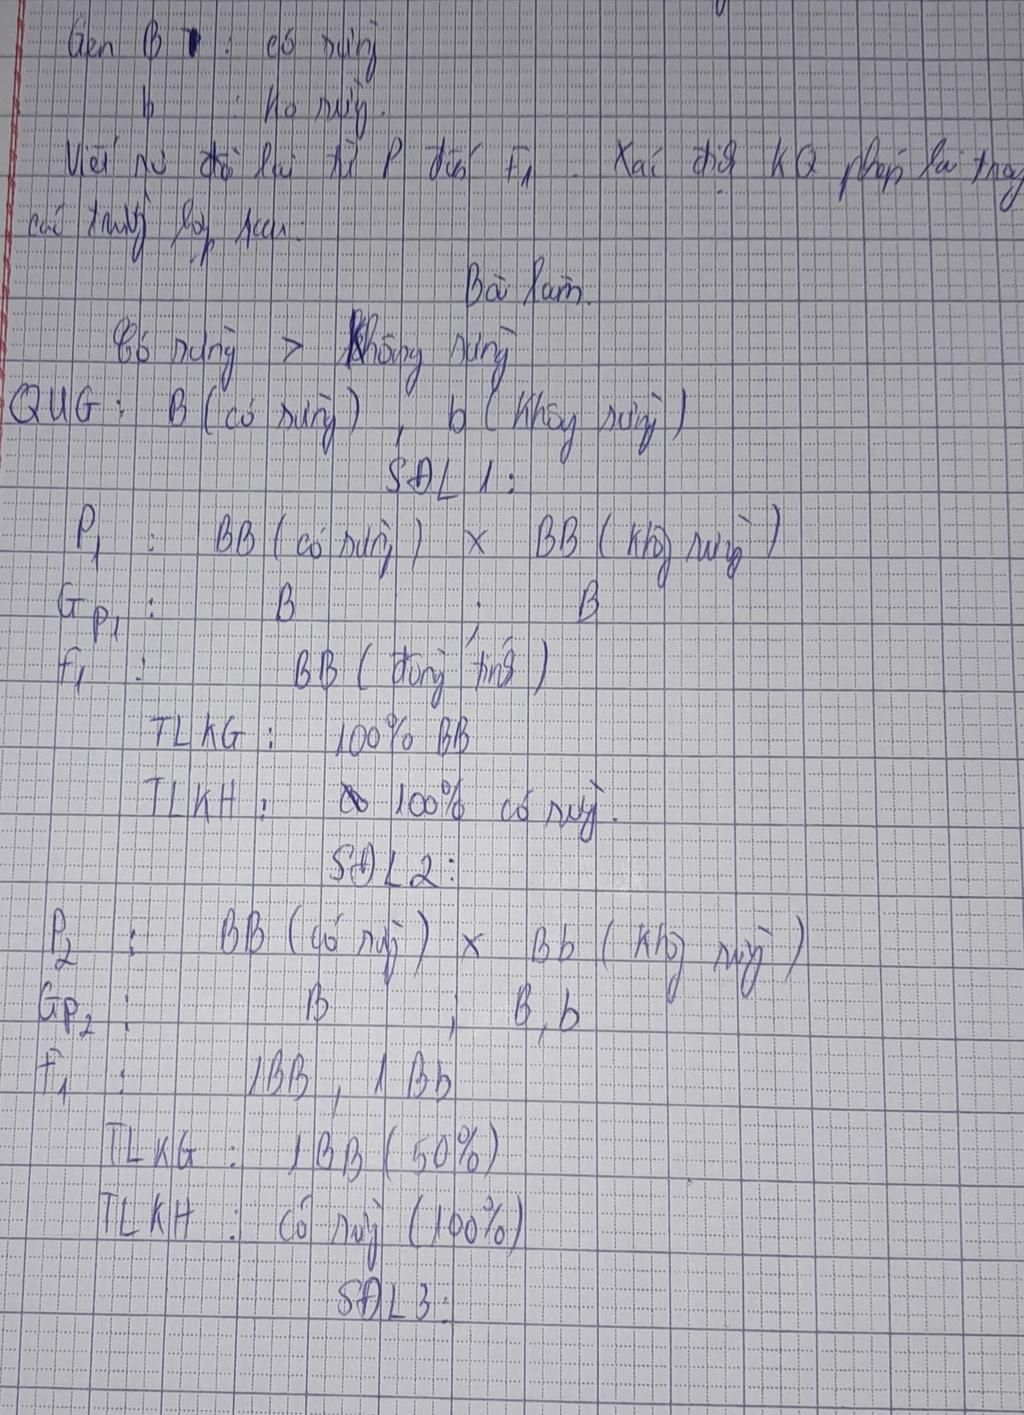 Gen B : có sừng
b : ko sừng.
Viết sơ đồ lai từ P đến F1. Xác định KQ phép lai trong
các trường hợp sau:
Bài làm.
Có sừng > Không sừng
QUG: B (có sừng), b (không sừng)
SĐL 1:
P1 : BB (có sừng) x BB (không sừng)
GP1 : B ; B
F1 : BB (đồng tính)
TLKG : 100% BB
TLKH : 100% có sừng.
SĐL 2:
P2 : BB (có sừng) x Bb (không sừng)
GP2 : B ; B, b
F1 : 1BB, 1 Bb
TLKG : 1BB (50%)
TLKH : có sừng (100%)
SĐL 3: